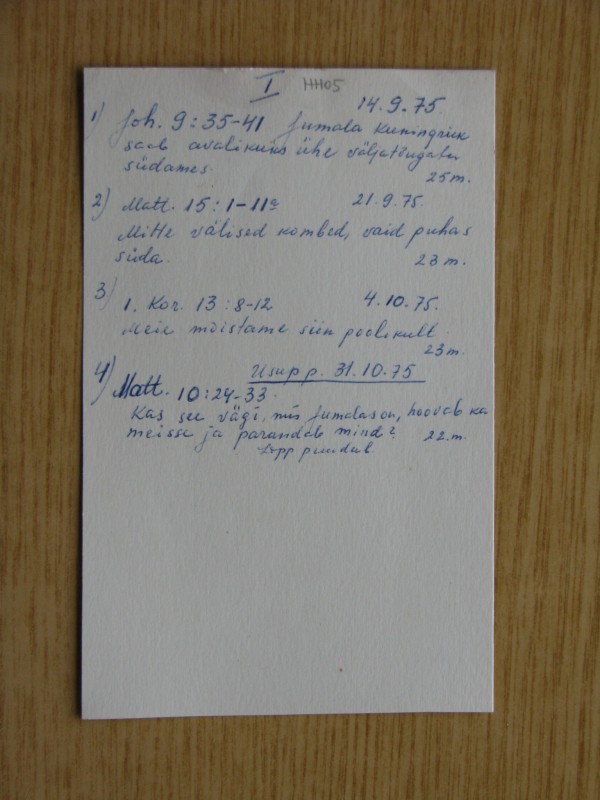 I HH05
14.9.75.
1) Joh. 9:35-41 Jumala Kuningriik
saab avalikuks ühe väljatõugatu
südames.
25m.
2) Matt. 15:1-11a 21.9.75.
Mitte välised kombed, vaid puhas
süda. 23m.
3) 1. Kor. 13:8-12 4.10.75.
Meie mõistame siin poolikult.
23m.
Usupp. 31.10.75
4) Matt. 10:24-33.
Kas see vägi, mis Jumalas on, hoovab ka
meisse ja parandab mind? 22.m.
Lõpp puudub.